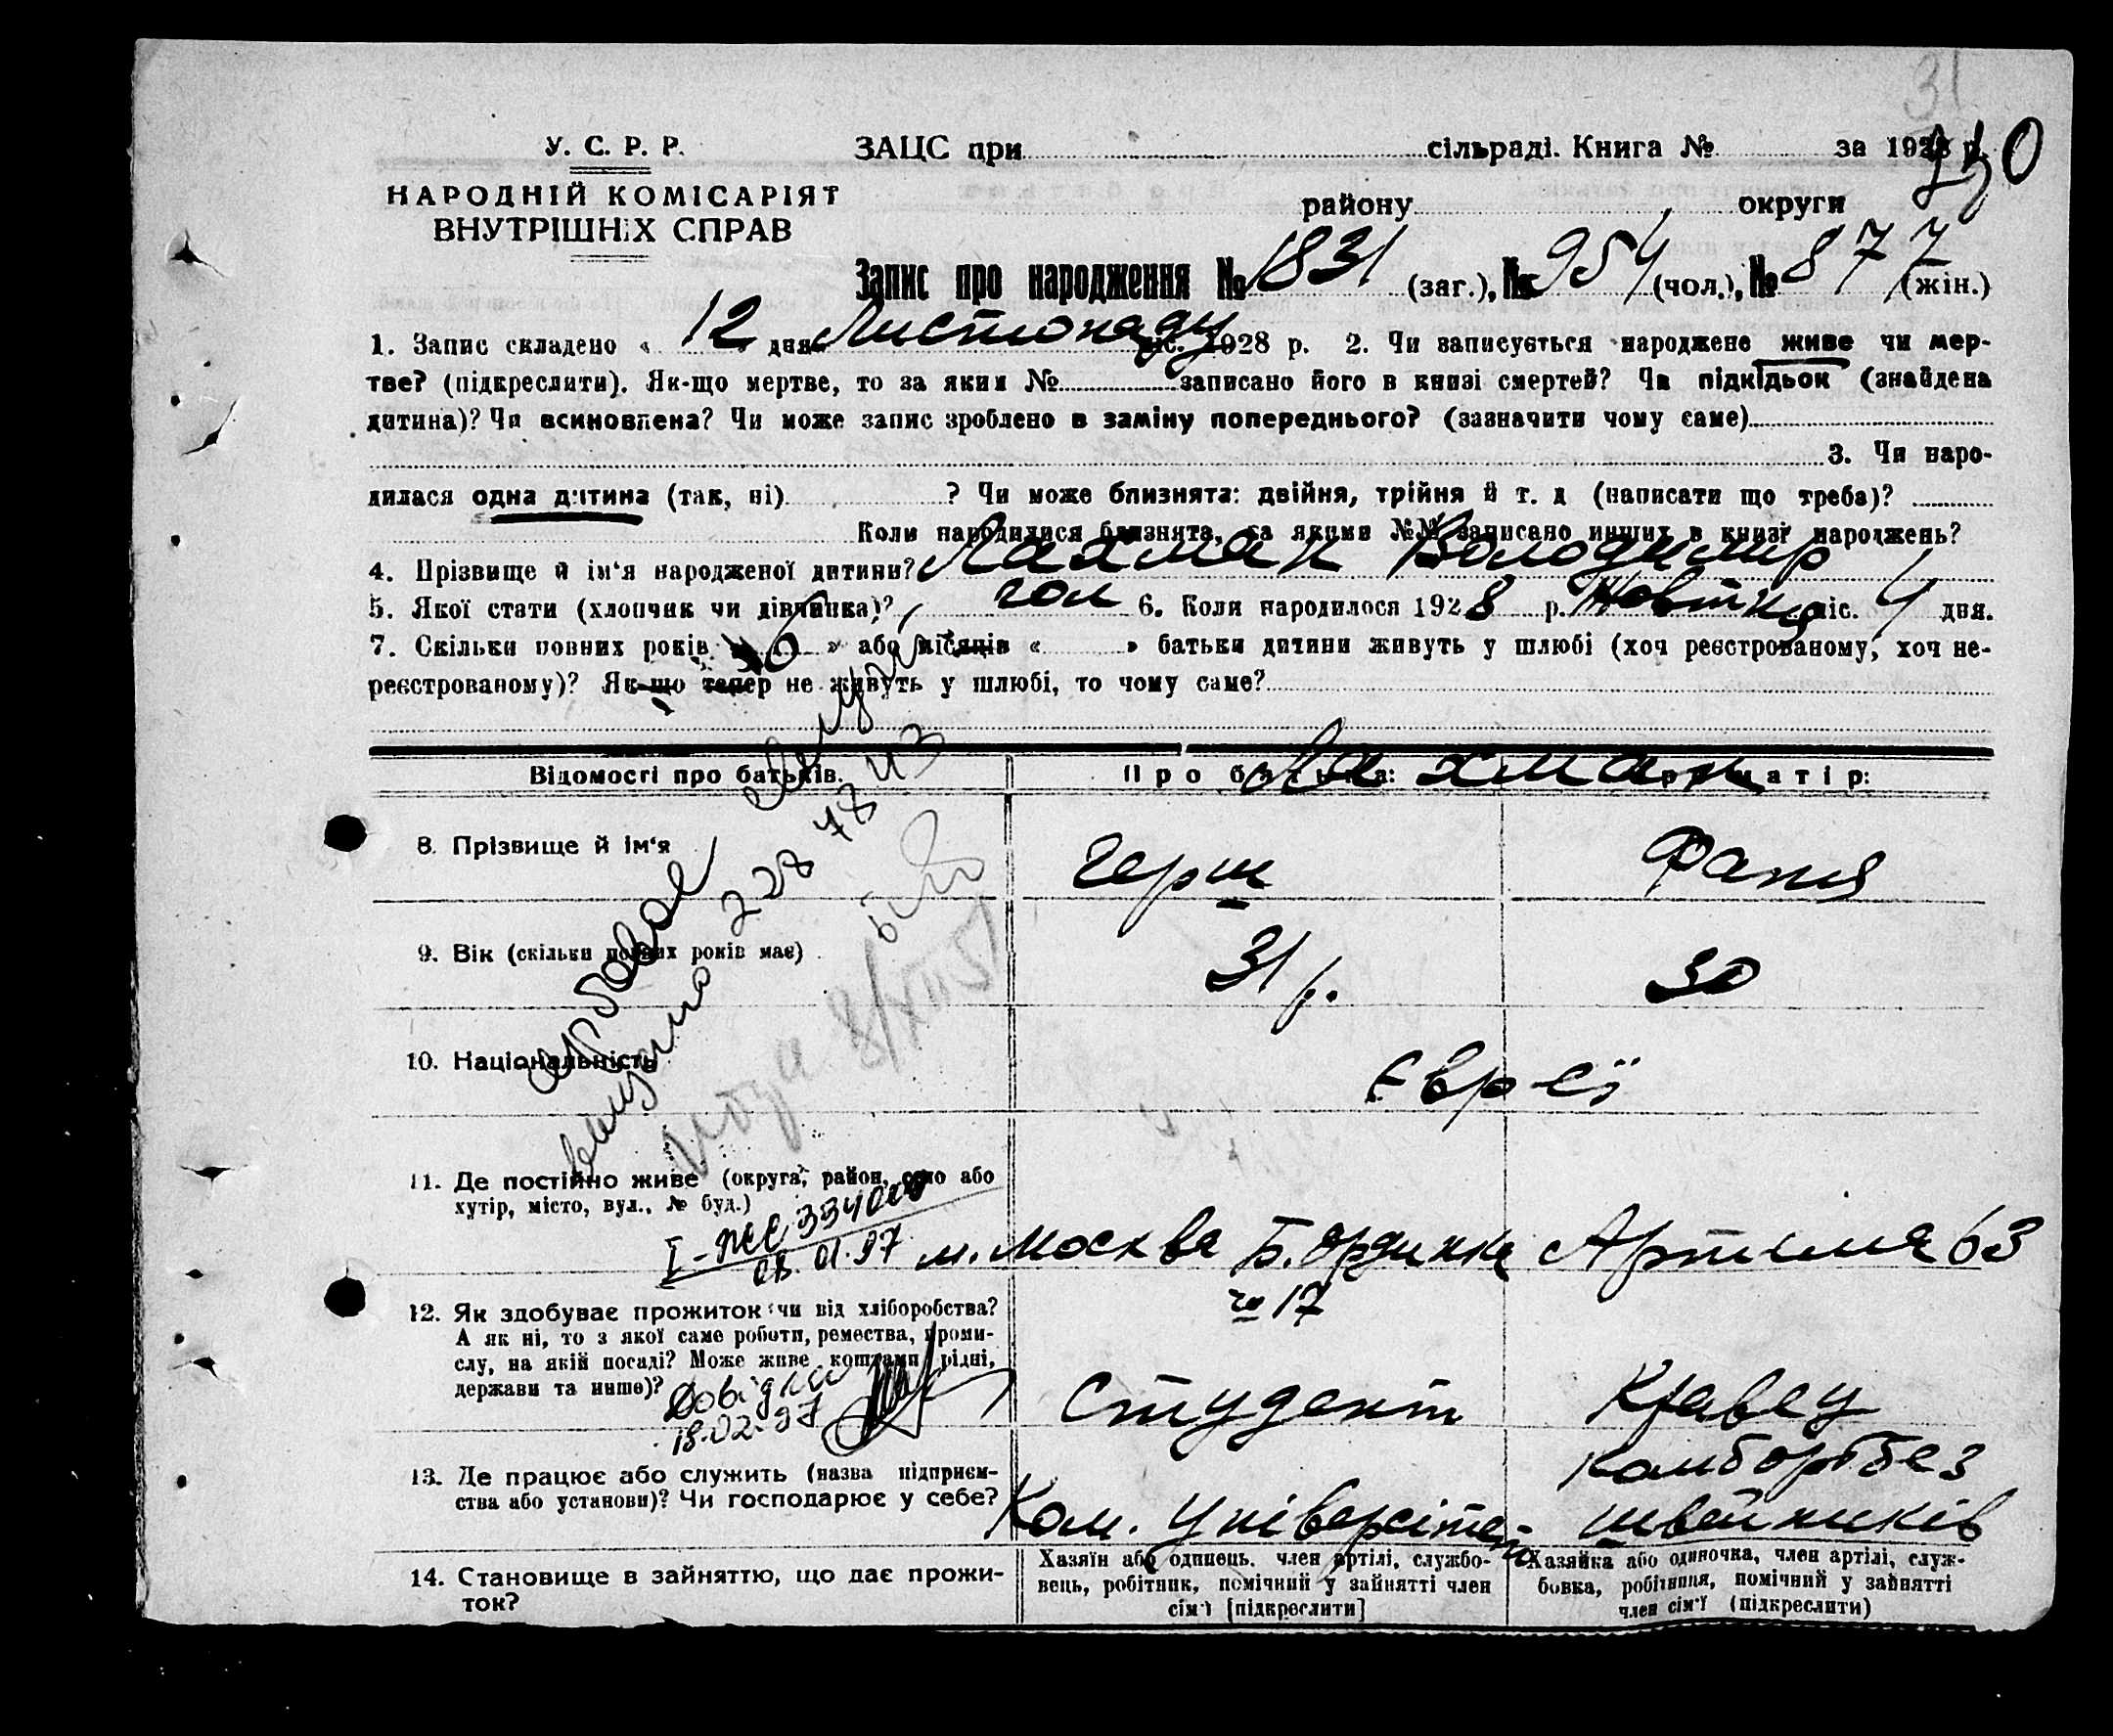 31
250
У. С. Р. Р.
НАРОДНІЙ КОМІСАРІЯТ
ВНУТРІШНІХ СПРАВ
ЗАЦС при сільраді. Книга № за 1928 р.
району округи
Запис про народження № 1831 (заг.), № 954 (чол.), № 877 (жін.)
1. Запис складено « 12 » дня Листопаду міс. 1928 р. 2. Чи записується народжене живе чи мер-
тве? (підкреслити). Як-що мертве, то за яким № записано його в книзі смертей? Чи підкідьок (знайдена
дитина)? Чи всиновлена? Чи може запис зроблено в заміну попереднього? (зазначити чому саме)
3. Чи наро-
дилася одна дитина (так, ні) ? Чи може близнята: двійня, трійня й т. д (написати що треба)?
Коли народилися близнята, за якими №№ записано инших в книзі народжень?
4. Прізвище й ім‘я народженої дитини? Лахман Володимир
5. Якої стати (хлопчик чи дівчинка)? чол 6. Коли народилося 1928 р. Жовтня міс. 4 дня.
7. Скільки повних років « 6 » або місяців « » батьки дитини живуть у шлюбі (хоч реєстрованому, хоч не-
реєстрованому)? Як-що тепер не живуть у шлюбі, то чому саме?
Відомості про батьків. Про батька: Про матір:
Лахман
8. Прізвище й ім‘я Герш Фаня
9. Вік (скільки повних років має) 31 р. 30
10. Національність Євреї
11. Де постійно живе (округа, район, село або
хутір, місто, вул., № буд.)
м. Москва Б. Ординка Артема 63
№ 17
I-ЖЕ 334000
08.01.97
12. Як здобуває прожиток: чи від хліборобства?
А як ні, то з якої саме роботи, ремества, проми-
слу, на якій посаді? Може живе коштами рідні,
держави та инше)?
Студент Кравец
Довідка
18.02.97
13. Де працює або служить (назва підприєм-
ства або установи)? Чи господарює у себе?
Ком. Університет швейників
14. Становище в зайняттю, що дає прожи-
ток?
Хазяїн або одинець, член артілі, службо-
вець, робітник, помічний у зайнятті член
сім‘ї [підкреслити]
Хазяйка або одиночка, член артілі, служ-
бовка, робітниця, помічний у зайнятті
член сім‘ї (підкреслити)